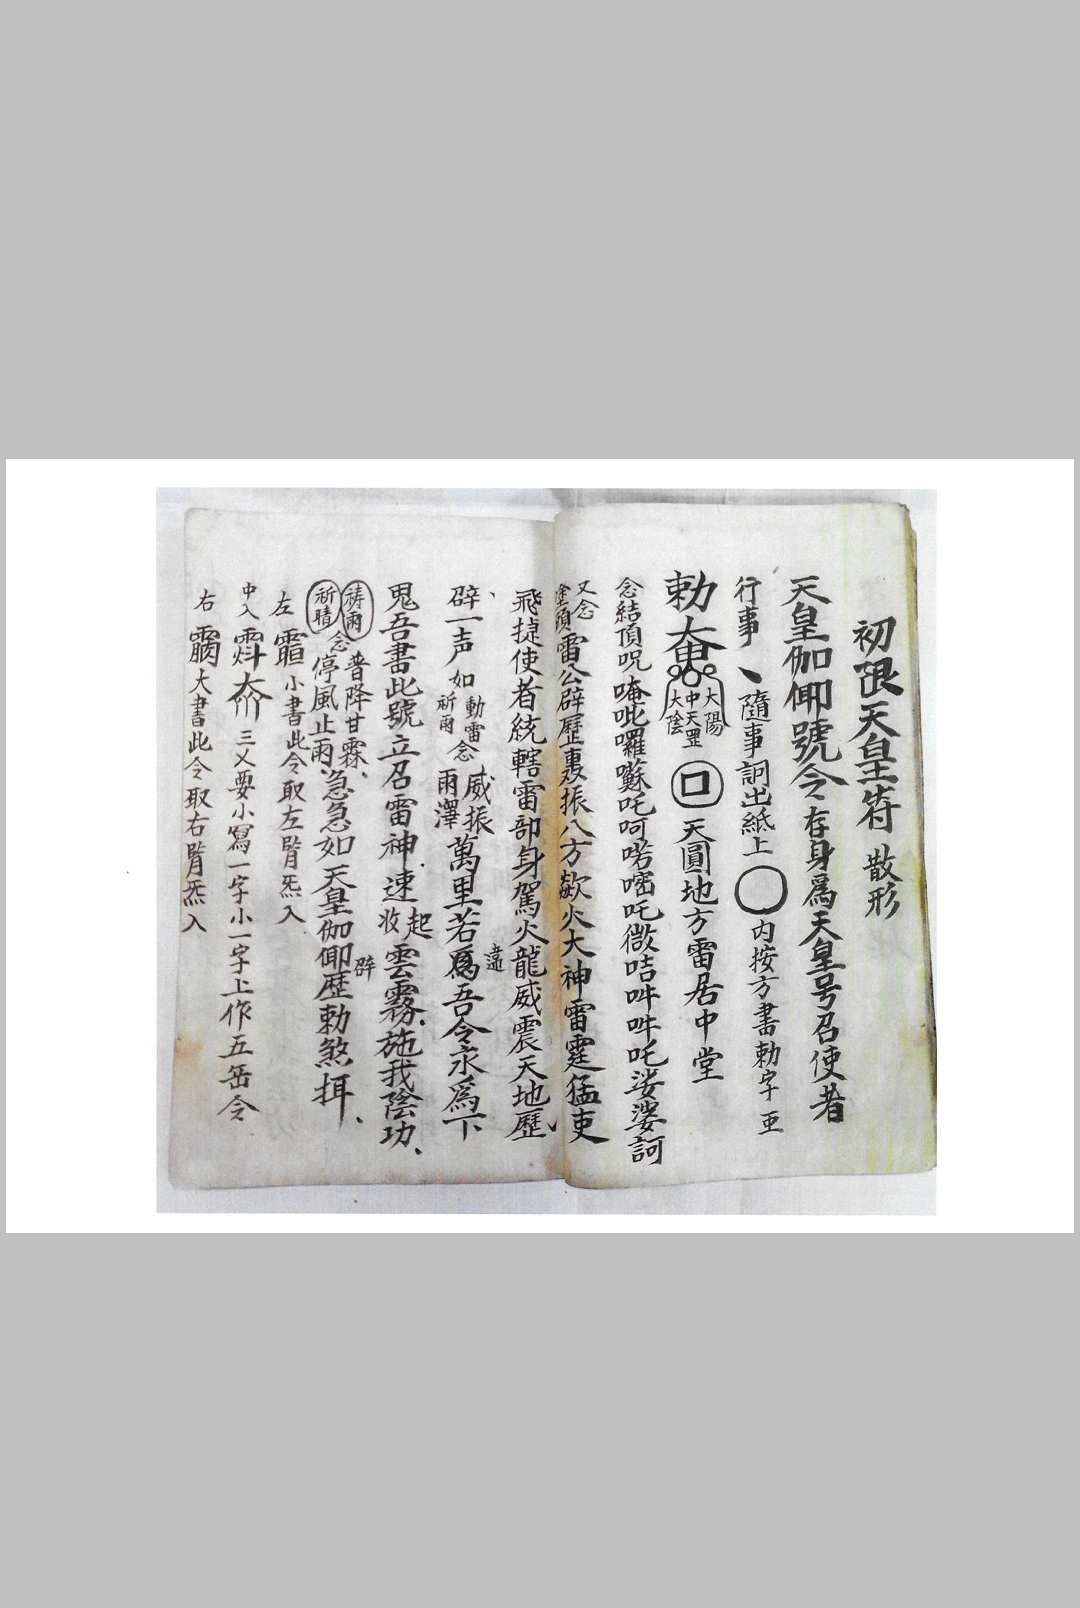 初限天皇符 散形
天皇伽㑡號令存身爲天皇号召使者
行事 隨事詞出紙上 内按方書勅字 亜
勅 大陽 中天罡 大陰 口 天圓地方雷居中堂
念結頂呪唵吡囉囌吒呵喏㗭吒㣲咭吽吽吒娑婆訶
又念 雷公辟歷裏振八方歘火大神雷霆猛吏
飛捷使者統轄雷部身駕火龍威震天地歷
辟一声如 動雷 祈雨 念 威振 雨澤 萬里若爲違吾令永爲下
鬼吾書此號立召雷神速 起 收 雲霧施我陰功
祷雨 祈晴 念 普降甘霖 停風止雨 急急如天皇伽㑡辟歷勅煞揖
左 小書此令取左肾炁入
中入 三乂要小寫一字小一字上作五岳令
右 大書此令取右肾炁入